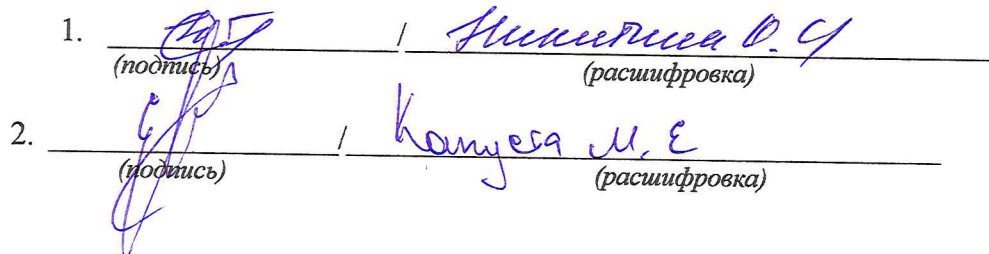 1. / Никитина О. Ч
(подпись) (расшифровка)
2. / Капуста М. Е
(подпись) (расшифровка)